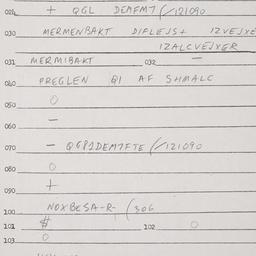 024 + QGL DEMFM7 (/121090
030 MERMENBAKT DIFLEJS+ IZVEJXE
IZALCVEJXGR
031 MERMIBAKT 032 —
040 PREGLEN QI AF SHMALC
050 O
060 —
070 — QGP2DEM7FTE (/121090
080 O
090 +
100 NOXBESA-R- (306
101 # 102 O
103 O